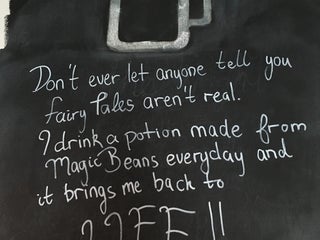 Don't ever let anyone tell you
fairy Tales aren't real.
I drink a potion made from
Magic Beans everyday and
it brings me back to
LIFE !!